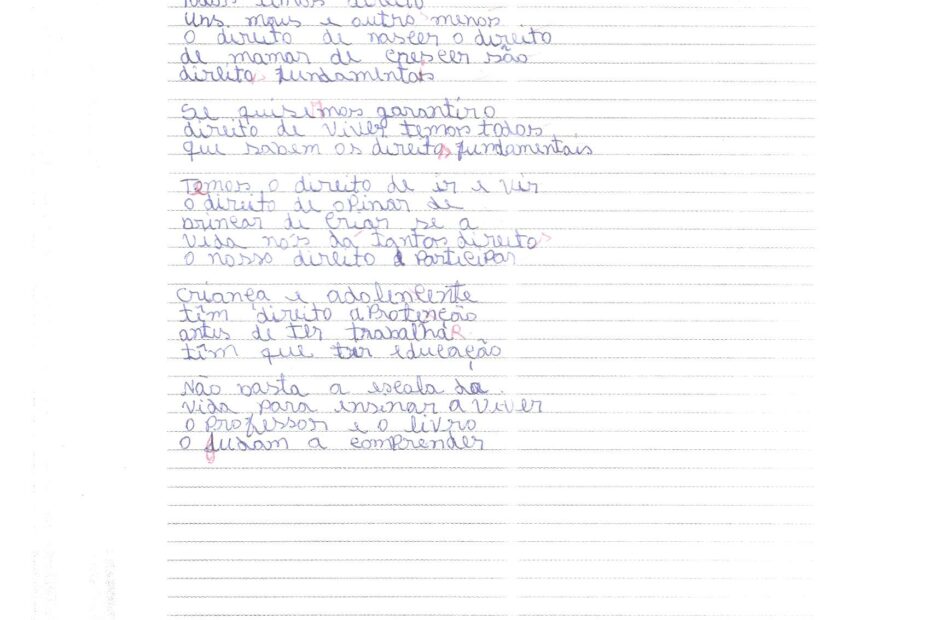 Todos temos direito
Uns mais e outro menos
O direito de nascer o direito
de mamar de crescer são
direitos fundamentais
Se quisermos garantir o
direito de viver temos todos
que sabem os direitos fundamentais
Temos o direito de ir e vir
o direito de opinar de
brincar de criar se a
vida nós dá tantos direitos
O nosso direito é participar
Criança e adolencente
têm direito a Protenção
antes de ter trabalhaR
têm que ter educação
Não basta a escola da
vida para ensinar a viver
o Professor e o livro
o judam a comprender